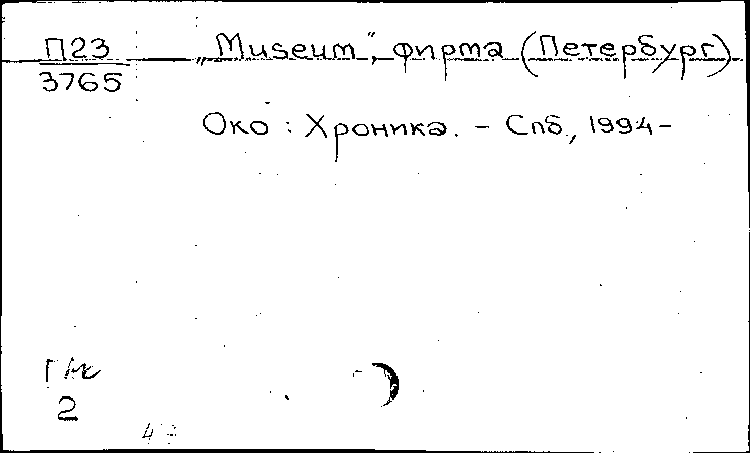 П23 „Museum", фирма (Петербург)
3765
Око : Хроника. – Спб., 1994–
2
4